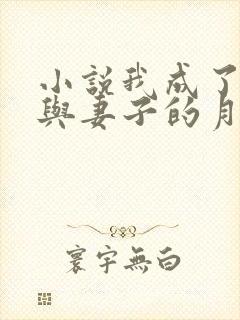 小說我成了
與妻子的月
寰宇無白